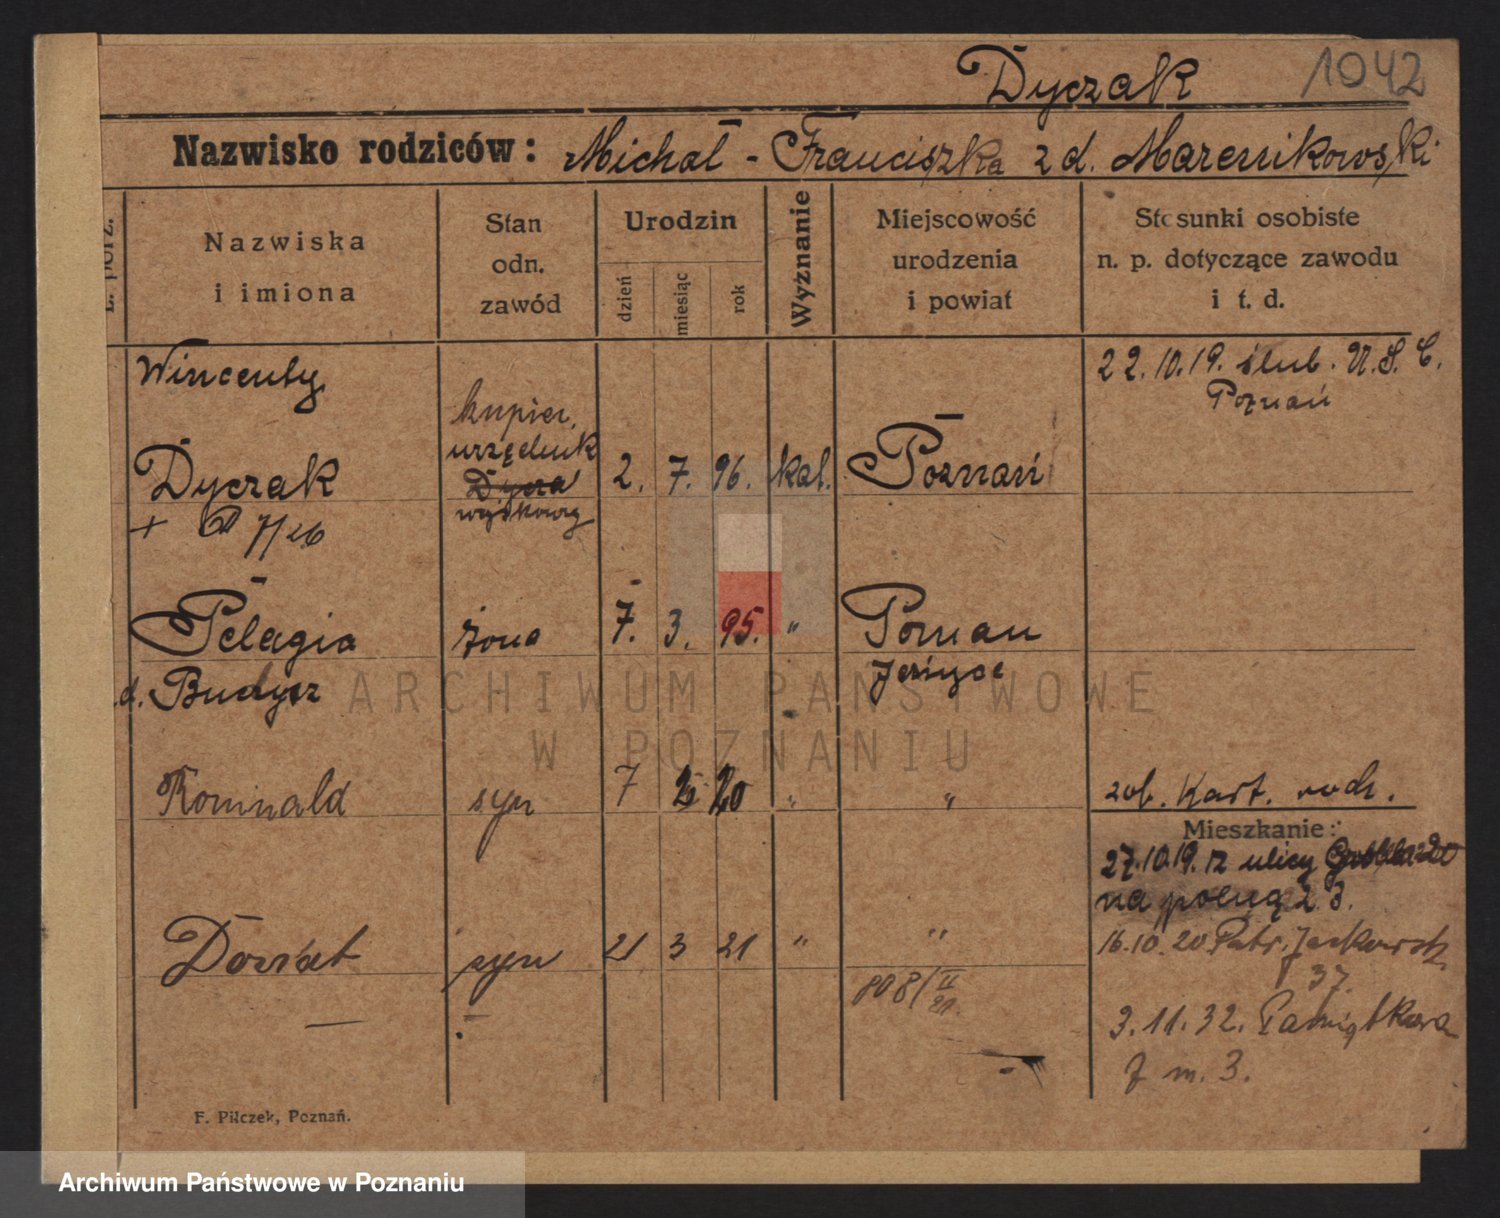 Dyczak 1042
Nazwisko rodziców: Michał - Franciszka z d. Marcinikowski
L. porz.
Nazwiska
i imiona
Stan
odn.
zawód
Urodzin
dzień
miesiąc
rok
Wyznanie
Miejscowość
urodzenia
i powiat
Stosunki osobiste
n. p. dotyczące zawodu
i t. d.
Wincenty
22.10.19. ślub. U.S.C.
Poznań
kupiec,
urzędnik
Dyczak 2. 7. 96. kat. Poznań
wojskowy
+ 7/26
Pelagia żona 7. 3. 95. " Poznan
d. Budysz Jeżyce
ARCHIWUM PAŃSTWOWE
W POZNANIU
Romuald syn 7 20 " " zob. Kart. rodz.
Mieszkanie:
27.10.19. z ulicy
na 23.
Donat syn 21 3 21 " " 16.10.20 Patr. Jackowsk
37.
808/II
21.
3.11.32. Pamiątkowa
7 m. 3.
F. Pilczek, Poznań.
Archiwum Państwowe w Poznaniu